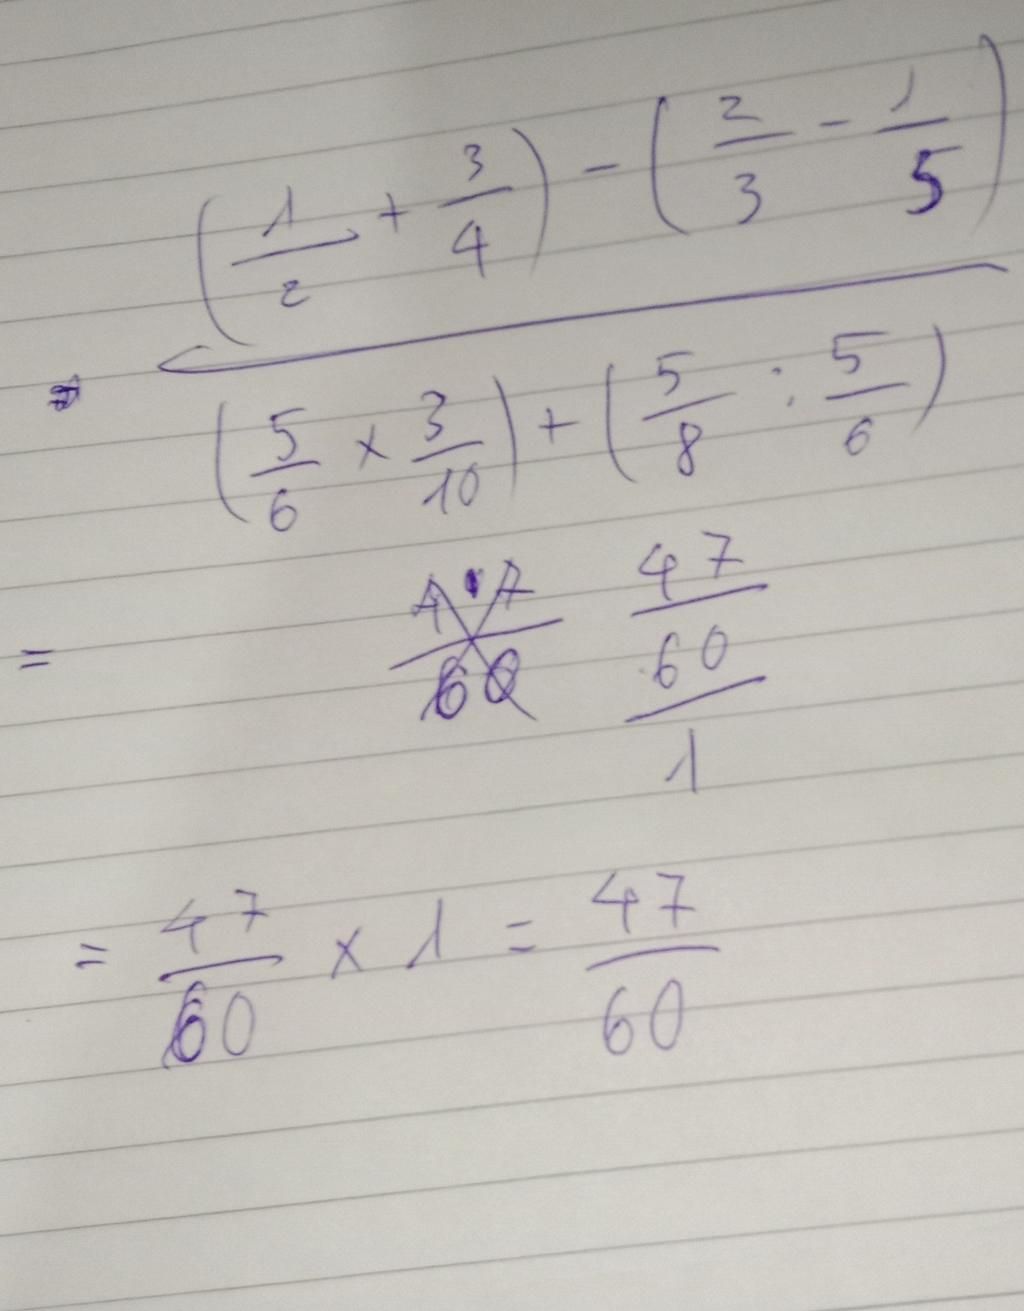 (1/2 + 3/4) - (2/3 - 1/5)
(5/6 x 3/10) + (5/8 : 5/6)
= 47/60 47/60/1
= 47/60 x 1 = 47/60